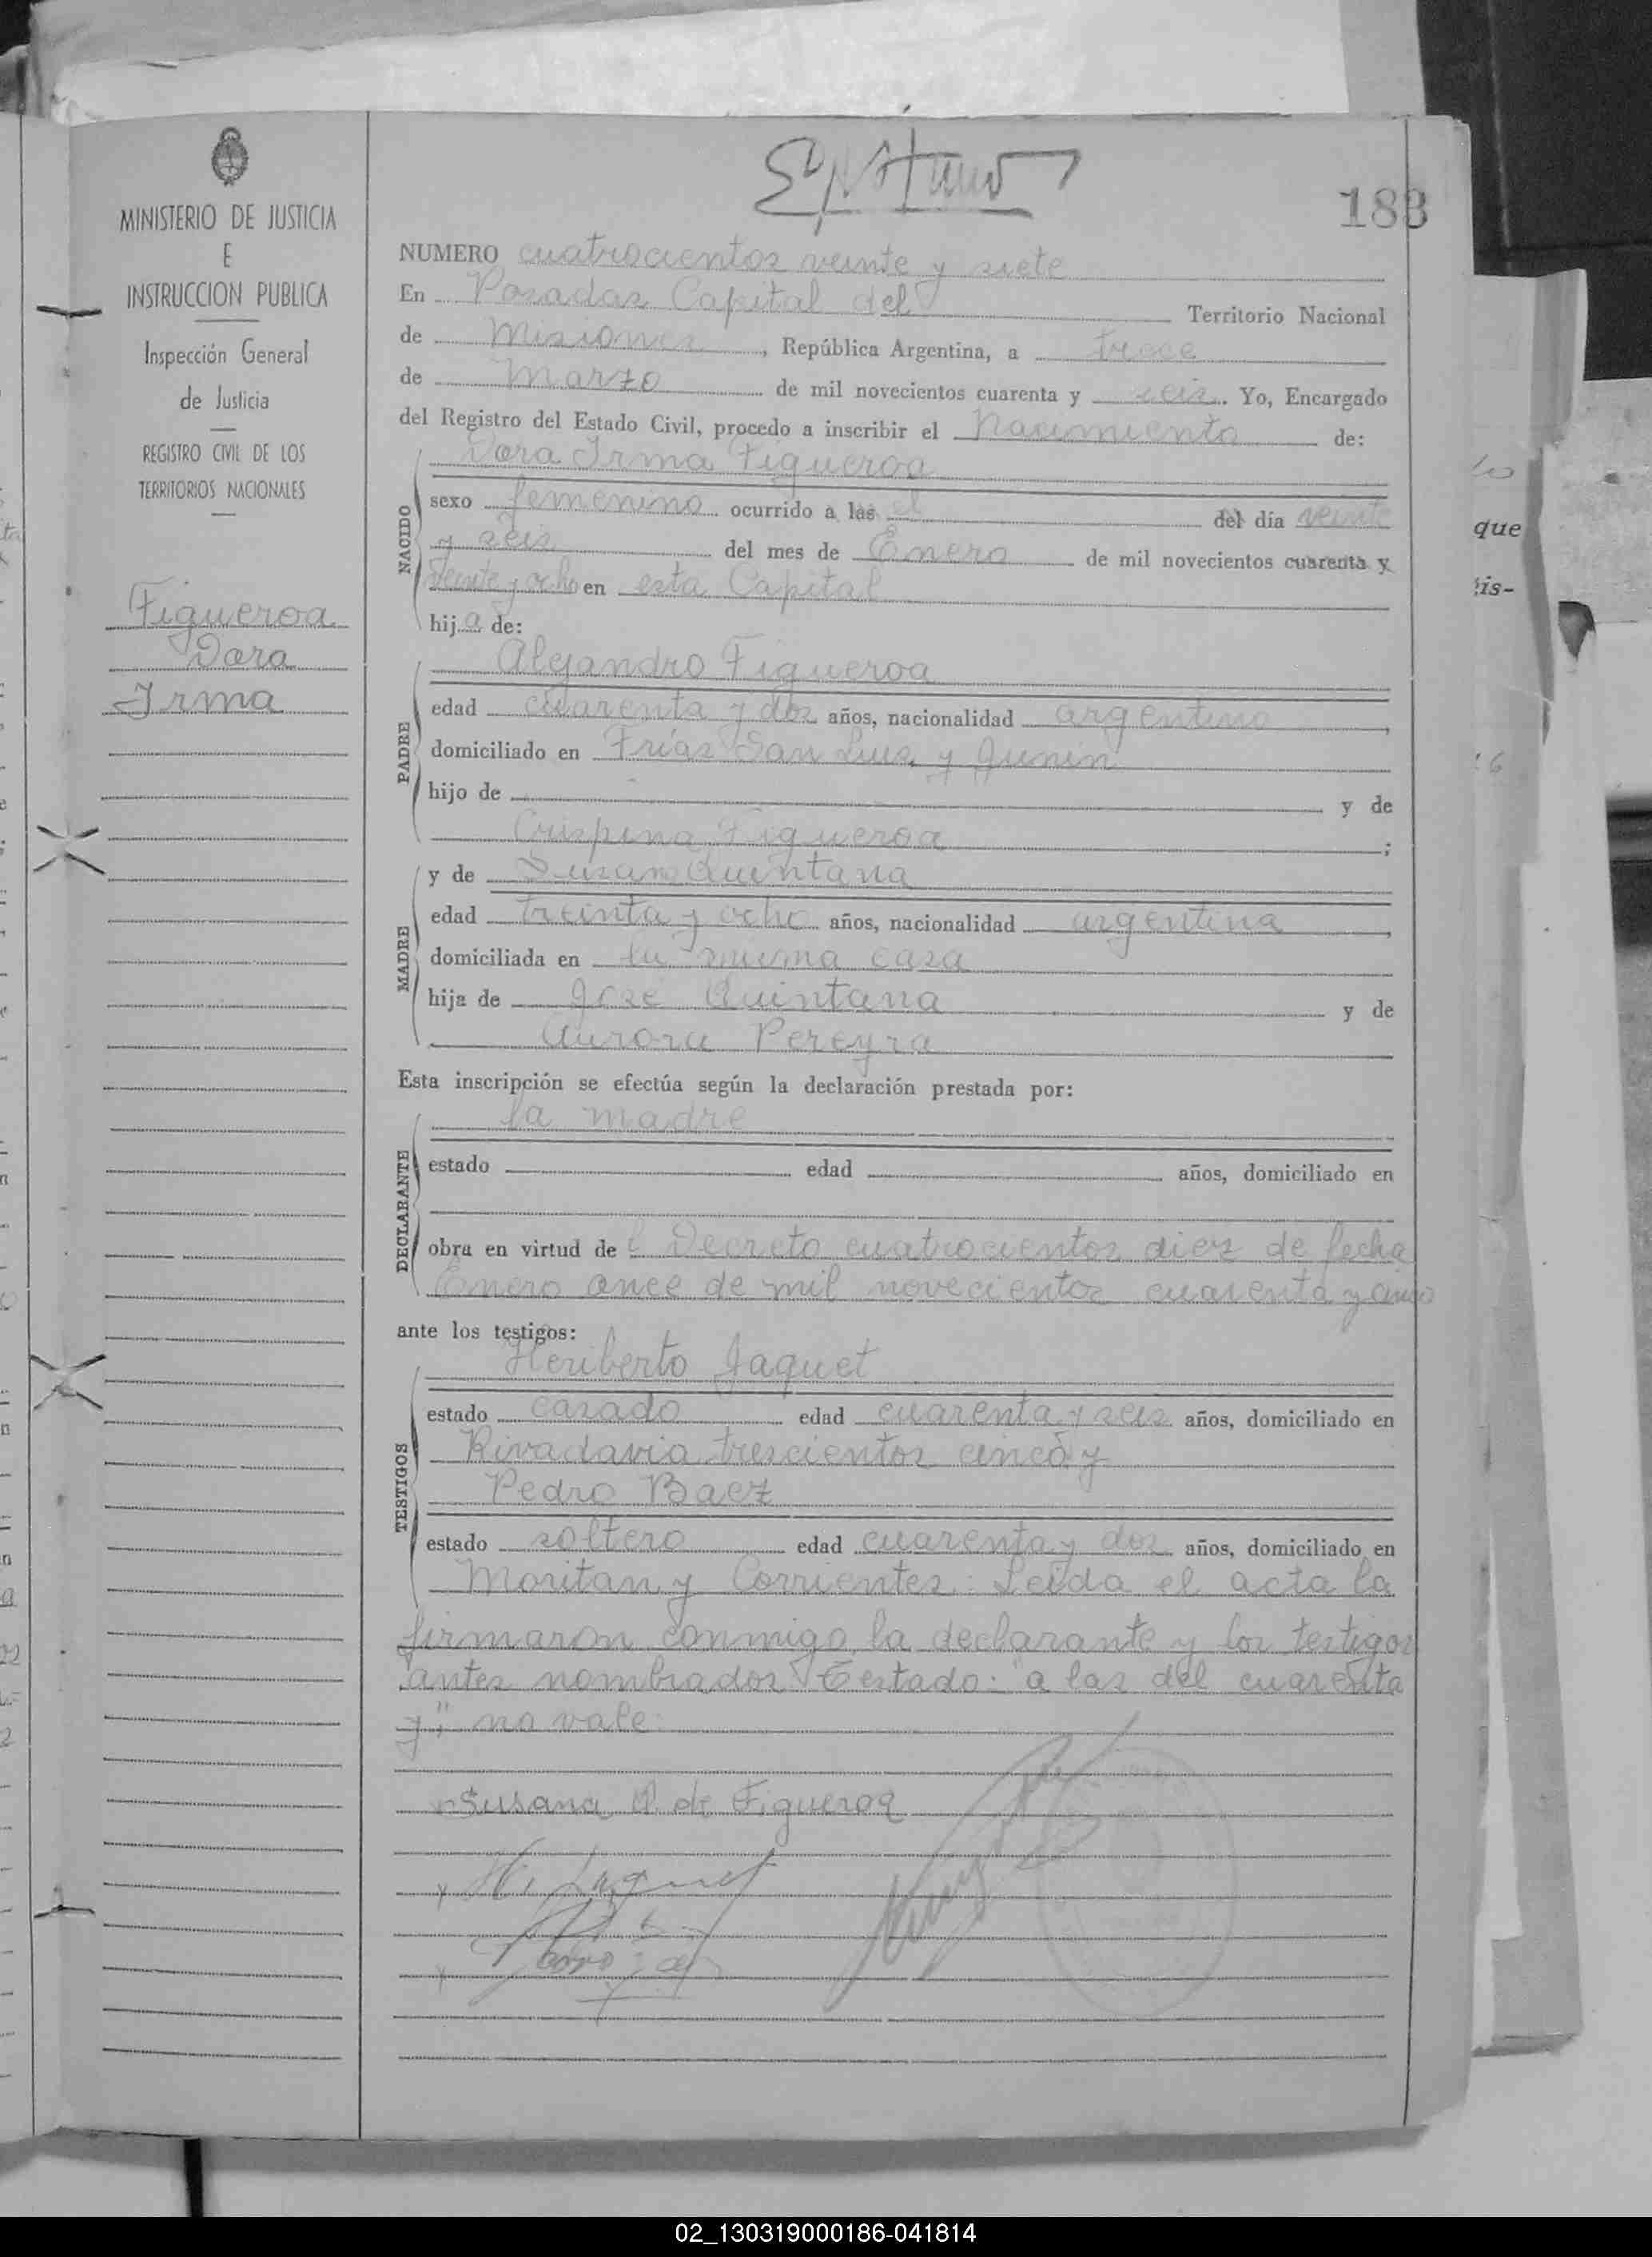 183
MINISTERIO DE JUSTICIA
E
INSTRUCCION PUBLICA
Inspección General
de Justicia
REGISTRO CIVIL DE LOS
TERRITORIOS NACIONALES
Figueroa
Dora
Irma
NUMERO cuatrocientos veinte y siete
En Posadas Capital del Territorio Nacional
de Misiones, República Argentina, a trece
de Marzo de mil novecientos cuarenta y seis. Yo, Encargado
del Registro del Estado Civil, procedo a inscribir el Nacimiento de:
Dora Irma Figueroa
NACIDO
sexo femenino ocurrido a las el del día veinte
y seis del mes de Enero de mil novecientos cuarenta y
veinte y ocho en esta Capital
hija de:
Alejandro Figueroa
PADRE
edad cuarenta y dos años, nacionalidad argentino
domiciliado en Frías San Luis y Junin
hijo de y de
Crispina Figueroa;
MADRE
y de Susana Quintana
edad treinta y ocho años, nacionalidad argentina
domiciliada en la misma casa
hija de José Quintana y de
Aurora Pereyra
Esta inscripción se efectúa según la declaración prestada por:
la madre
DECLARANTE
estado edad años, domiciliado en
obra en virtud del Decreto cuatrocientos diez de fecha
Enero once de mil novecientos cuarenta y cinco
ante los testigos:
Heriberto Jaquet
TESTIGOS
estado casado edad cuarenta y seis años, domiciliado en
Rivadavia trescientos cinco y
Pedro Baez
estado soltero edad cuarenta y dos años, domiciliado en
Moritan y Corrientes. Leída el acta la
firmaron conmigo la declarante y los testigos
antes nombrados Testado: "a las del cuarenta
y" no vale.
Susana Q de Figueroa
H. Jaquet
que
is-
02_130319000186-041814